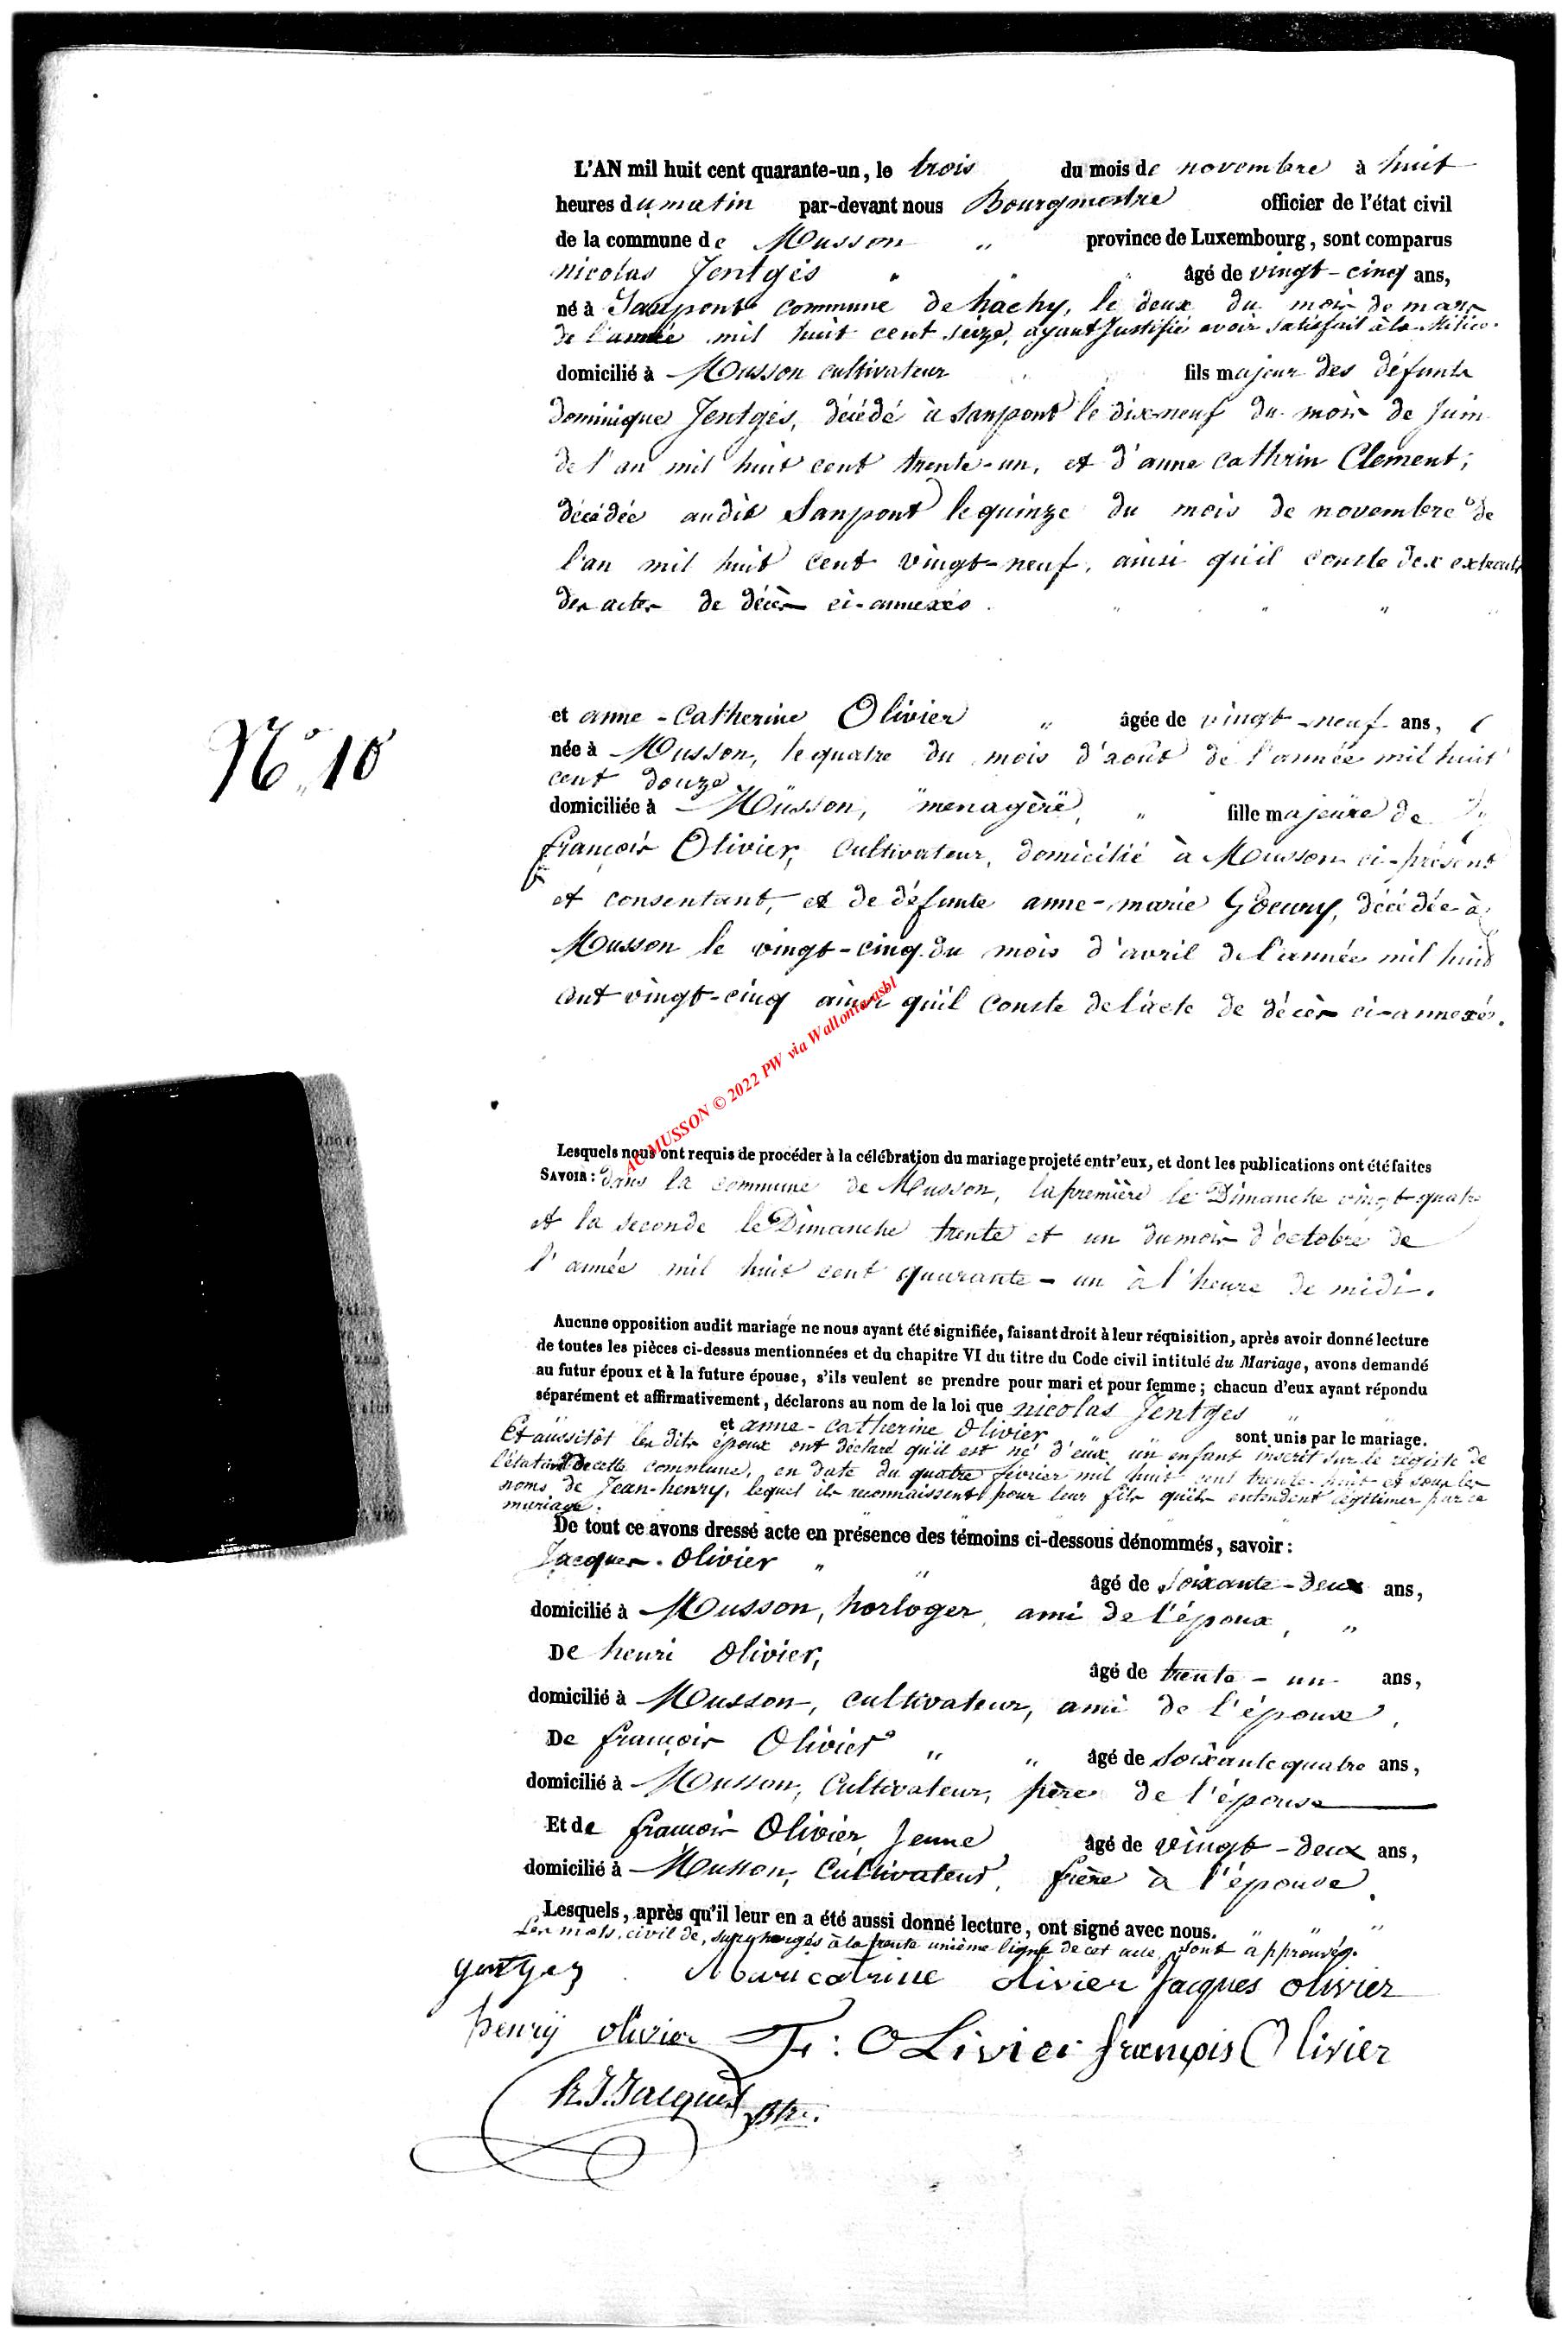 L'AN mil huit cent quarante-un, le trois du mois de novembre à huit
heures du matin par-devant nous Bourgmestre officier de l'état civil
de la commune de Musson " province de Luxembourg, sont comparus
nicolas Jentges " " " âgé de vingt-cinq ans,
né à Sanpont commune de hachy, le deux du mois de mars
de l'année mil huit cent seize, ayant Justifié avoir satisfait à la Milice.
domicilié à Musson cultivateur fils majeur des défunts
dominique Jentges, décédé à Sanpont le dix-neuf du mois de Juin
de l'an mil huit cent trente-un, et d'anne Cathrin Clement;
décédée audit Sanpont le quinze du mois de novembre de
l'an mil huit cent vingt-neuf, ainsi qu'il conste des extraits
des actes de décès ci-annexés. " " " "
N° 10
et anne-Catherine Olivier " âgée de vingt-neuf ans,
née à Musson, le quatre du mois d'août de l'année mil huit
cent douze
domiciliée à Musson, menagère, " fille majeure de
françois Olivier, Cultivateur, domicilié à Musson ci-présent
et consentant, et de défunte anne-marie Goeury, décédée à
Musson le vingt-cinq du mois d'avril de l'année mil huit
cent vingt-cinq ainsi qu'il conste de l'acte de décès ci-annexés.
AC MUSSON © 2022 PW via Wallonia-asbl
Lesquels nous ont requis de procéder à la célébration du mariage projeté entr'eux, et dont les publications ont été faites
SAVOIR: dans la commune de Musson, la première le Dimanche vingt-quatre
et la seconde le Dimanche trente et un du mois d'octobre de
l'année mil huit cent quarante-un à l'heure de midi.
Aucune opposition audit mariage ne nous ayant été signifiée, faisant droit à leur réquisition, après avoir donné lecture
de toutes les pièces ci-dessus mentionnées et du chapitre VI du titre du Code civil intitulé du Mariage, avons demandé
au futur époux et à la future épouse, s'ils veulent se prendre pour mari et pour femme; chacun d'eux ayant répondu
séparément et affirmativement, déclarons au nom de la loi que nicolas Jentges "
et anne-Catherine Olivier " " sont unis par le mariage.
Et aussitôt les dits époux ont déclaré qu'il est né d'eux un enfant inscrit sur le registe de
l'état civil de cette commune, en date du quatre février mil huit cent trente-huit et sous les
noms de Jean-henry, lequel ils reconnaissent pour leur fils qu'ils entendent légitimer par ce
mariage.
De tout ce avons dressé acte en présence des témoins ci-dessous dénommés, savoir:
Jacques Olivier " " âgé de Soixante-deux ans,
domicilié à Musson, horloger, ami de l'époux, "
De henri Olivier, âgé de trente-un ans,
domicilié à Musson, cultivateur, ami de l'époux,
De françois Olivier " " âgé de Soixante quatre ans,
domicilié à Musson, Cultivateur, père de l'épouse
Et de françois Olivier Jeune âgé de vingt-deux ans,
domicilié à Musson, Cultivateur, frère à l'épouse.
Lesquels, après qu'il leur en a été aussi donné lecture, ont signé avec nous. " " "
Les mots, civil de, surchargés à la trente unième ligne de cet acte, sont approuvés.
Maricatrine olivier Jacques olivier
henrÿ olivier F: OLivier françois Olivier